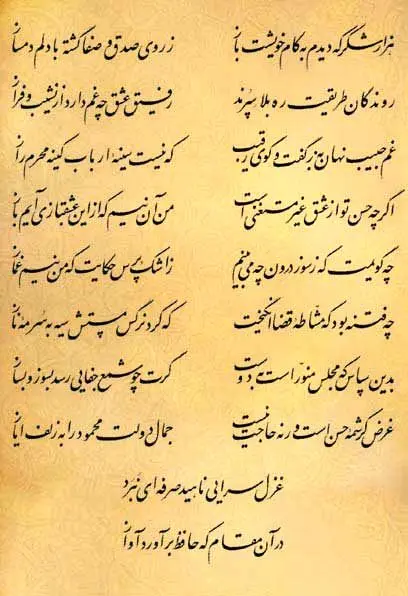 هزار شکر که دیدم به کام خویشت باز ز روی صدق و صفا گشته با دلم دمساز
روندگان طریقت ره بلا سپرند رفیق عشق چه غم دارد از نشیب و فراز
غم حبیب نهان به ز گفت و گوی رقیب که نیست سینهٔ ارباب کینه محرم راز
اگر چه حسن تو از عشق غیر مستغنی است من آن نیم که از این عشقبازی آیم باز
چه گویمت که ز سوز درون چه می‌بینم ز اشک پرس حکایت که من نیم غماز
چه فتنه بود که مشاطهٔ قضا انگیخت که کرد نرگس مستش سیه به سرمه ناز
بدین سپاس که مجلس منور است به دوست گرت چو شمع جفایی رسد بسوز و بساز
غرض کرشمهٔ حسن است ورنه حاجت نیست جمال دولت محمود را به زلف ایاز
غزل سرایی ناهید صرفه‌ای نبرد
در آن مقام که حافظ برآورد آواز